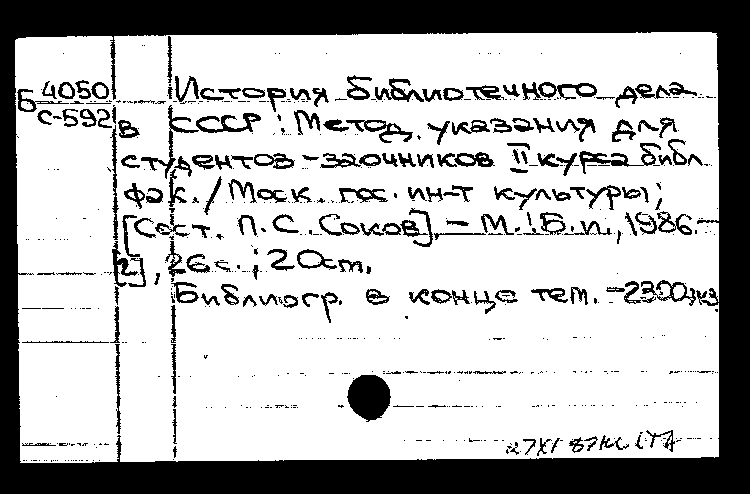 Б 4050 История библиотечного дела
С-592 в СССР: Метод. указания для
студентов-заочников II курса библ
фак. / Моск. гос. ин-т культуры;
[Сост. П. С. Соков]. – М.: Б.и., 1986. –
[2], 26с.; 20cm.
Библиогр. в конце тем. – 2300экз